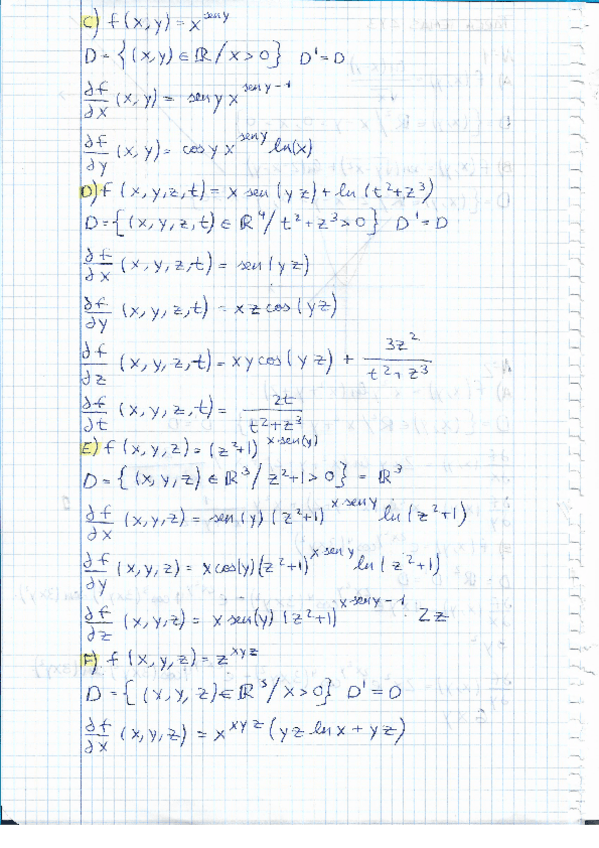 C) f(x,y) = x^{sen y}
D = {(x,y) ∈ ℝ / x > 0} D' = D
∂f/∂x (x,y) = sen y x^{sen y - 1}
∂f/∂y (x,y) = cos y x^{sen y} ln(x)
D) f(x,y,z,t) = x sen(yz) + ln(t²+z³)
D = {(x,y,z,t) ∈ ℝ⁴ / t²+z³>0} D' = D
∂f/∂x (x,y,z,t) = sen(yz)
∂f/∂y (x,y,z,t) = xz cos(yz)
∂f/∂z (x,y,z,t) = xy cos(yz) + 3z²/(t²+z³)
∂f/∂t (x,y,z,t) = 2t/(t²+z³)
E) f(x,y,z) = (z²+1)^{x·sen(y)}
D = {(x,y,z) ∈ ℝ³ / z²+1>0} = ℝ³
∂f/∂x (x,y,z) = sen(y) (z²+1)^{x sen y} ln(z²+1)
∂f/∂y (x,y,z) = x cos(y) (z²+1)^{x sen y} ln(z²+1)
∂f/∂z (x,y,z) = x sen(y) (z²+1)^{x sen y - 1} · 2z
F) f(x,y,z) = z^{xyz}
D = {(x,y,z) ∈ ℝ³ / x>0} D' = D
∂f/∂x (x,y,z) = x^{xyz} (yz ln x + yz)